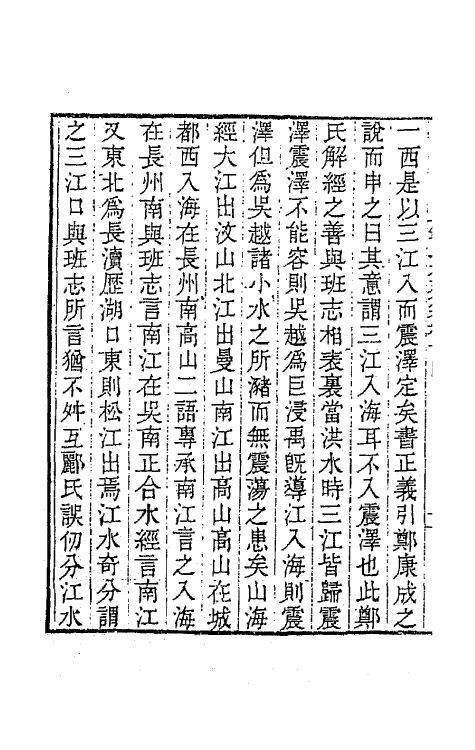 一西是以三江入而震澤定矣書正義引鄭康成之
說而申之曰其意謂三江入海耳不入震澤也此鄭
氏解經之善與班志相表裏當洪水時三江皆歸震
澤震澤不能容則吳越爲巨浸禹旣導江入海則震
澤但爲吳越諸小水之所豬而無震蕩之患矣山海
經大江出汶山北江出曼山南江出高山高山在城
都西入海在長州南高山二語專承南江言之入海
在長州南與班志言南江在吳南正合水經言南江
又東北爲長瀆歷湖口東則松江出焉江水奇分謂
之三江口與班志所言猶不舛互酈氏誤仞分江水